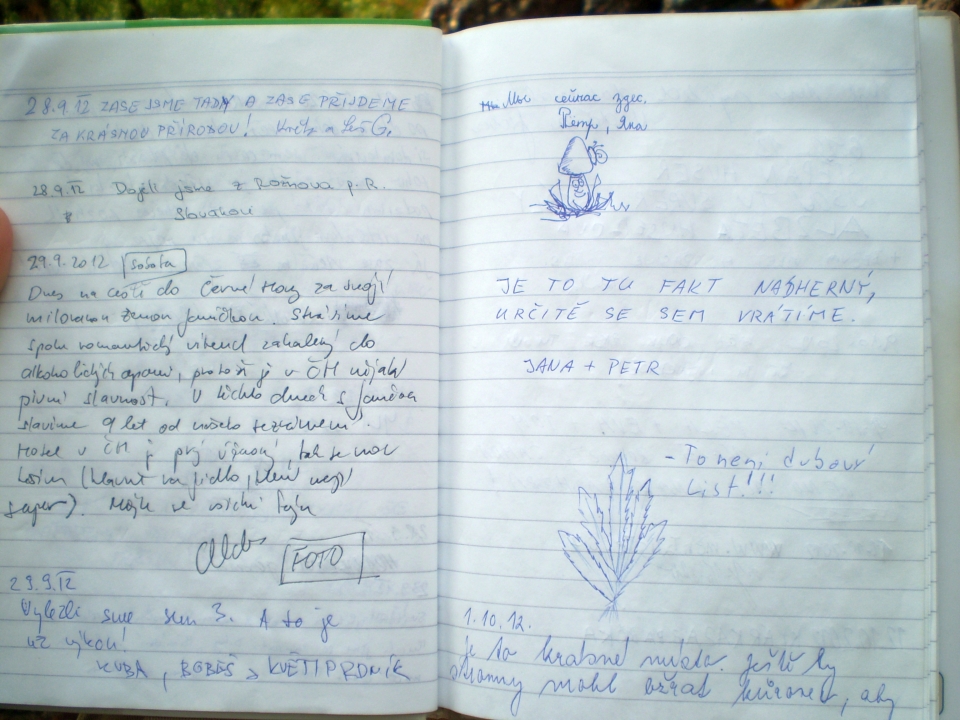 28.9.12 ZASE JSME TADY A ZASE PŘIJDEME
ZA KRÁSNOU PŘÍRODOU! a G.
28.9.12 Dojeli jsme z Rožnova p. R.
Slovákovi
29.9.2012 sobota
Dnes na cestě do Černé Hory za svojí
milovanou ženou Janičkou. Strávíme
spolu romantický víkend zahalený do
alkoholických oparů, protože je v ČH nějaká
pivní slavnost. V těchto dnech s Janičkou
slavíme 9 let od našeho seznámení.
Hotel v ČH je prý výborný, tak se moc
těším (hlavně na jídlo, které mají
super). Mějte se všichni fajn
FOTO
29.9.12
Vylezli sme sem 3. A to je
už výkon!
KUBA, BOBEŠ a KVĚTIPRDNÍK
Мы сейчас здес.
Петр, Яна
JE TO TU FAKT NÁDHERNÝ,
URČITĚ SE SEM VRÁTÍME.
JANA + PETR
- To není dubový
list!!!
1.10.12.
je to krásné místo. ještě by
stromy mohl ožrat kůrovec, aby